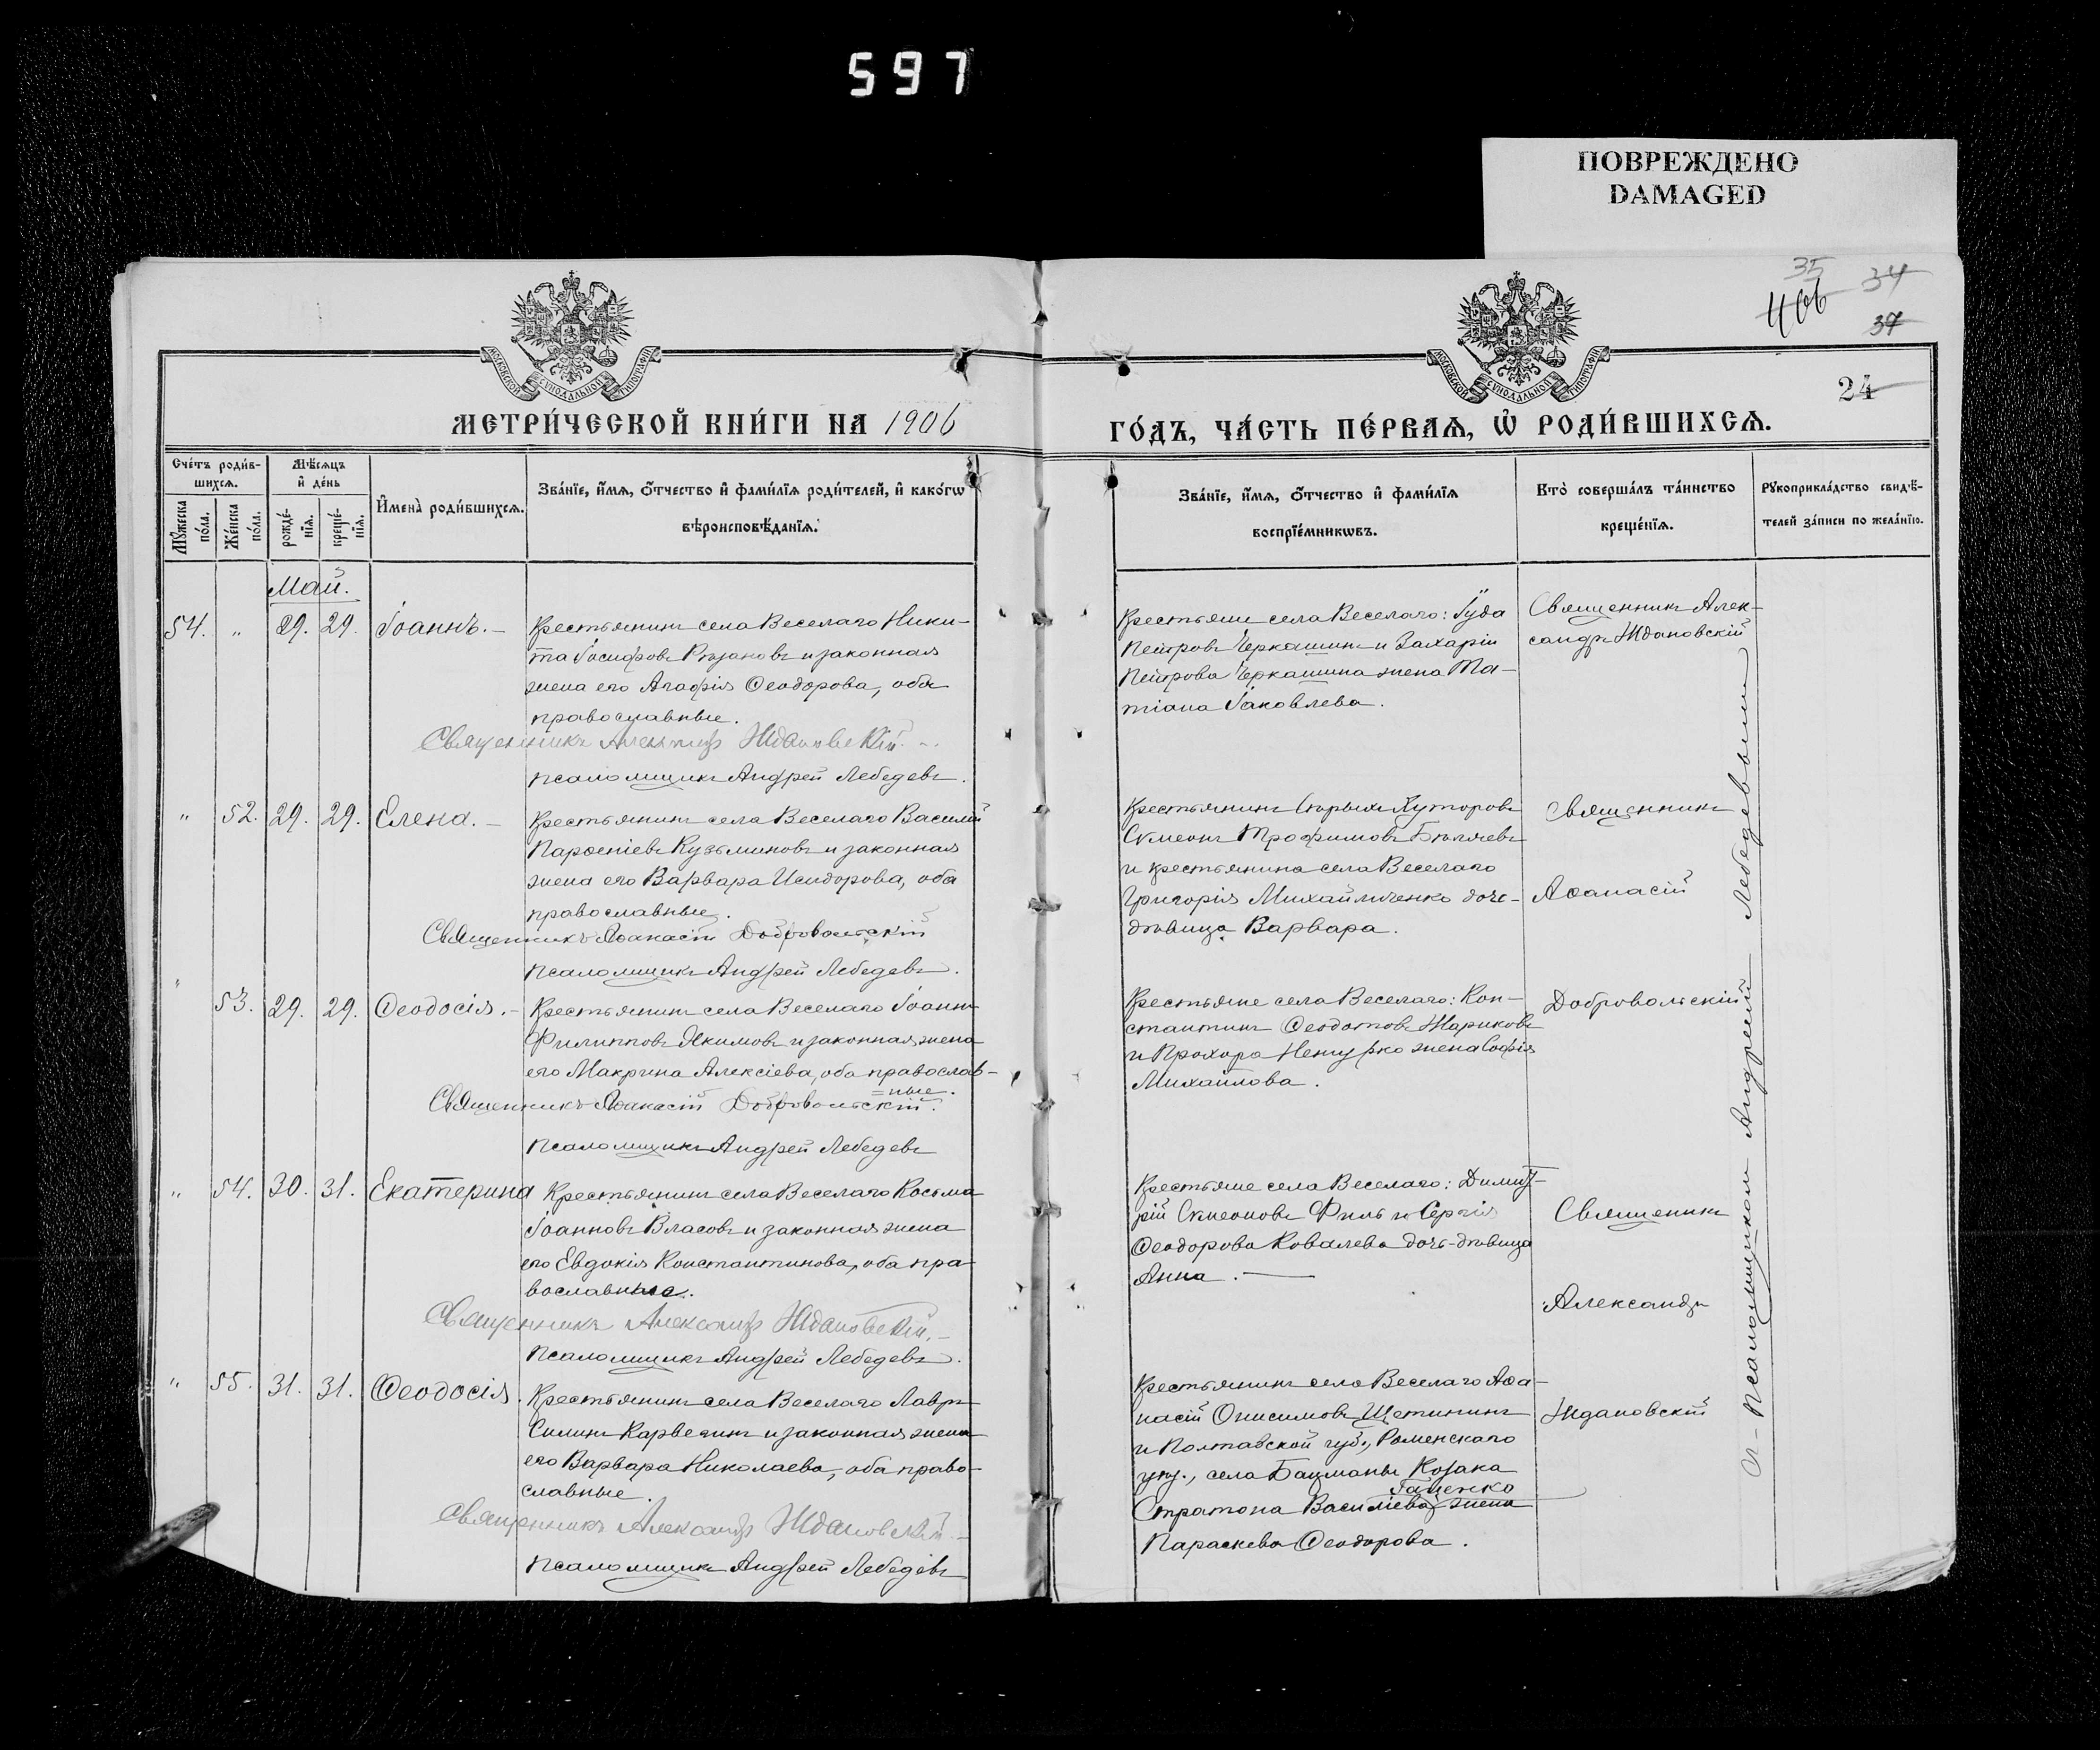 597
ПОВРЕЖДЕНО
DAMAGED
35 34
406
37
24
МОСКОВСКОЙ СѴНОДАЛЬНОЙ ТИПОГРАФІИ
МОСКОВСКОЙ СѴНОДАЛЬНОЙ ТИПОГРАФІИ
МЕТРИ́ЧЕСКОЙ КНИ́ГИ НА 1906
ГО́ДЪ, ЧА́СТЬ ПЕ́РВАѦ, Ѡ҆ РОДИ́ВШИХСѦ.
Сче́тъ роди́в-
шихсѧ.
Мꙋ́жеска по́ла.
Же́нска по́ла.
Мѣ́сѧцъ
и҆ де́нь
рожде́-
нїѧ.
креще́-
нїѧ.
И҆мена̀ роди́вшихсѧ.
Зва́нїе, и҆́мѧ, ѻ҆́тчество и҆ фами́лїѧ роди́телей, и҆ како́гѡ
вѣроисповѣ́данїѧ.
Зва́нїе, и҆́мѧ, ѻ҆́тчество и҆ фами́лїѧ
воспрїе́мникѡвъ.
Кто̀ соверша́лъ та́инство
креще́нїѧ.
Рꙋкоприкла́дство свидѣ́-
телей за́писи по жела́нїю.
Май.
54. " 29. 29. Іоаннъ. –
Крестьянинъ села Веселаго Ники-
та Іосифовъ Рязановъ и законная
жена его Агафія Ѳеодорова, оба
православные.
Священникъ Александръ Ждановскій.
Псаломщикъ Андрей Лебедевъ.
Крестьяне села Веселаго: Іуда
Петровъ Черкашинъ и Захарія
Петрова Черкашина жена Та-
тіана Іаковлева.
Священникъ Алек-
сандръ Ждановскій
" 52. 29. 29. Елена. –
Крестьянинъ села Веселаго Василій
Парѳеніевъ Кузьминовъ и законная
жена его Варвара Исидорова, оба
православные.
Священникъ Аѳанасій Добровольскій
Псаломщикъ Андрей Лебедевъ.
Крестьянинъ Старыхъ Хуторовъ
Сѵмеонъ Трофимовъ Бѣляевъ
и крестьянина села Веселаго
Григорія Михайличенко дочь-
дѣвица Варвара.
Священникъ
Аѳанасій
" 53. 29. 29. Ѳеодосія. –
Крестьянинъ села Веселаго Іоаннъ
Филипповъ Якимовъ и законная жена
его Макрина Алексіева, оба православ-
=ные.
Священникъ Аѳанасій Добровольскій.
Псаломщикъ Андрей Лебедевъ
Крестьяне села Веселаго: Кон-
стантинъ Ѳеодотовъ Жариковъ
и Прохора жена Софія
Михайлова.
Добровольскій
" 54. 30. 31. Екатерина
Крестьянинъ села Веселаго Косьма
Іоанновъ Власовъ и законная жена
его Евдокія Константинова, оба пра-
вославные.
Священникъ Александръ Ждановскій. –
Псаломщикъ Андрей Лебедевъ.
Крестьяне села Веселаго: Димит-
рій Сѵмеоновъ Филь и Сергія
Ѳеодорова Ковалева дочь-дѣвица
Анна. —
Священникъ
Александръ
" 55. 31. 31. Ѳеодосія.
Крестьянинъ села Веселаго Лавръ
Силинъ и законная жена
его Варвара Николаева, оба право-
славные.
Священникъ Александръ Ждановскій –
Псаломщикъ Андрей Лебедевъ
Крестьянинъ села Веселаго Аѳа-
насій Онисимовъ Щетининъ
и Полтавской губ., Роменскаго
уѣз., села Бацманы Козака
Гаценко
Стратона Василіева жена
Параскева Ѳеодорова.
Ждановскій
Съ Псаломщикомъ Андреемъ Лебедевымъ